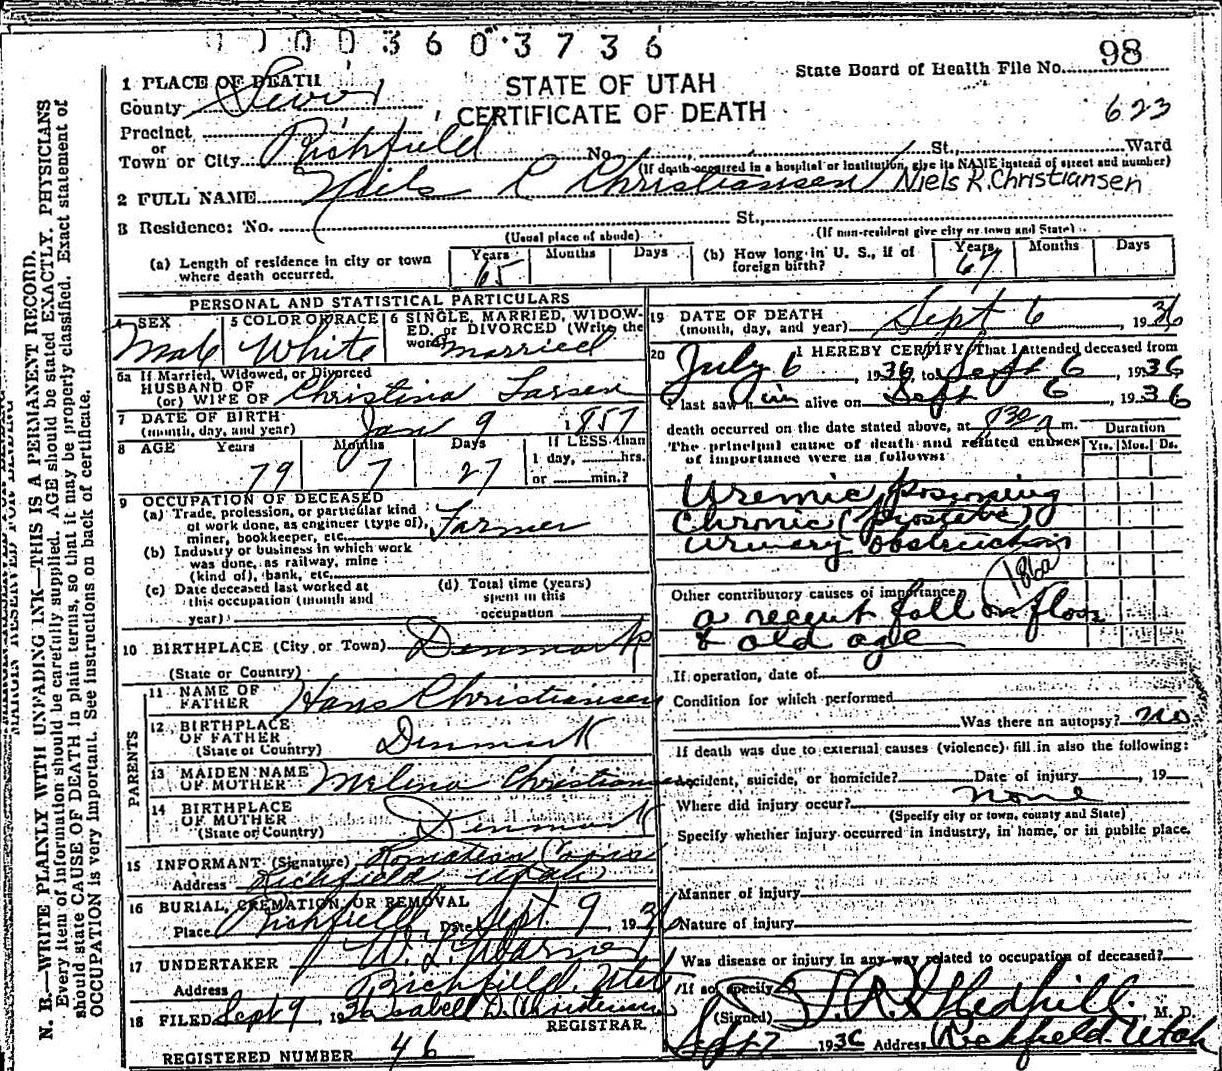 0 0 0 3 6 0 3 7 3 6
98
State Board of Health File No.
623
STATE OF UTAH
CERTIFICATE OF DEATH
1 PLACE OF DEATH
County Sevier
Precinct
or
Town or City Richfield No. St., Ward
(If death occurred in a hospital or institution, give its NAME instead of street and number)
2 FULL NAME Niels R Christiansen / Niels R. Christiansen
3 Residence: No. St.,
(Usual place of abode) (If non-resident give city or town and State)
(a) Length of residence in city or town where death occurred. Years 65 Months Days (b) How long in U. S., if of foreign birth? Years 67 Months Days
PERSONAL AND STATISTICAL PARTICULARS
4 SEX Male 5 COLOR OR RACE White 6 SINGLE, MARRIED, WIDOWED, or DIVORCED (Write the word) Married
6a If Married, Widowed, or Divorced
HUSBAND OF
(or) WIFE OF Christina Larsen
7 DATE OF BIRTH
(month, day, and year) Jan 9 1857
8 AGE Years 79 Months 7 Days 27 If LESS than 1 day, hrs. or min.?
9 OCCUPATION OF DECEASED
(a) Trade, profession, or particular kind
of work done, as engineer (type of),
miner, bookkeeper, etc. Farmer
(b) Industry or business in which work
was done, as railway, mine
(kind of), bank, etc.
(c) Date deceased last worked at
this occupation (month and
year)
(d) Total time (years)
spent in this
occupation
10 BIRTHPLACE (City or Town) Denmark
(State or Country)
PARENTS
11 NAME OF
FATHER Hans Christiansen
12 BIRTHPLACE
OF FATHER
(State or Country) Denmark
13 MAIDEN NAME
OF MOTHER Melina
14 BIRTHPLACE
OF MOTHER
(State or Country) Denmark
15 INFORMANT (Signature)
Address Richfield Utah
16 BURIAL, CREMATION, OR REMOVAL
Place Richfield Date Sept. 9, 1936
17 UNDERTAKER W. L. Warner
Address Richfield, Utah
18 FILED Sept 9, 1936 Isabell D. Christensen
REGISTRAR.
REGISTERED NUMBER 46
19 DATE OF DEATH
(month, day, and year) Sept 6, 1936
20 I HEREBY CERTIFY, That I attended deceased from
July 6, 1936, to Sept 6, 1936
I last saw him alive on Sept 6, 1936
death occurred on the date stated above, at 830 a m.
Duration
Yrs. Mos. Ds.
The principal cause of death and related causes
of importance were as follows:
Uremic Poisoning
Chronic (prostate)
Urinary obstruction
186a
Other contributory causes of importance
a recent fall on floor
& old age
If operation, date of
Condition for which performed
Was there an autopsy? no
If death was due to external causes (violence) fill in also the following:
Accident, suicide, or homicide? Date of injury, 19
Where did injury occur? none
(Specify city or town, county and State)
Specify whether injury occurred in industry, in home, or in public place.
Manner of injury
Nature of injury
Was disease or injury in any way related to occupation of deceased?
If so, specify
(Signed) T. R. Gledhill, M. D.
Sept 7 1936 Address Richfield Utah
N. B.—WRITE PLAINLY WITH UNFADING INK—THIS IS A PERMANENT RECORD.
Every item of information should be carefully supplied. AGE should be stated EXACTLY. PHYSICIANS
should state CAUSE OF DEATH in plain terms, so that it may be properly classified. Exact statement of
OCCUPATION is very important. See instructions on back of certificate.
MARGIN RESERVED FOR BINDING